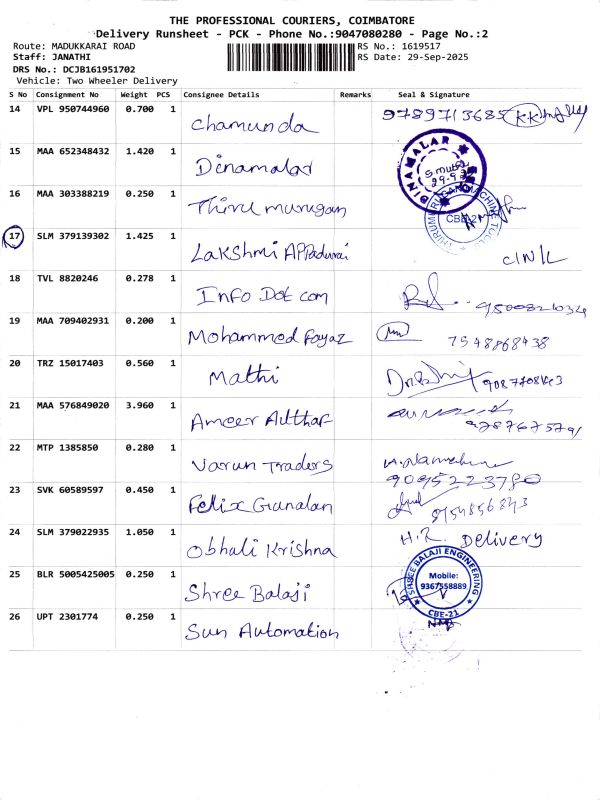 THE PROFESSIONAL COURIERS, COIMBATORE
Delivery Runsheet - PCK - Phone No.:9047080280 - Page No.:2
Route: MADUKKARAI ROAD RS No.: 1619517
Staff: JANATHI RS Date: 29-Sep-2025
DRS No.: DCJB161951702
Vehicle: Two Wheeler Delivery
S No Consignment No Weight PCS Consignee Details Remarks Seal & Signature
14 VPL 950744960 0.700 1 Chamunda 9789713685
15 MAA 652348432 1.420 1 Dinamalar DINAMALAR
16 MAA 303388219 0.250 1 Thirumurugan
17 SLM 379139302 1.425 1 Lakshmi Appadurai
18 TVL 8820246 0.278 1 Info Dot com
19 MAA 709402931 0.200 1 Mohammed Fayaz 7548868438
20 TRZ 15017403 0.560 1 Mathi
21 MAA 576849020 3.960 1 Ameer Althaf
22 MTP 1385850 0.280 1 Varun Traders 9095223780
23 SVK 60589597 0.450 1 Felix Gunalan
24 SLM 379022935 1.050 1 Obhuli Krishna H.R. Delivery
25 BLR 5005425005 0.250 1 Shree Balaji SHREE BALAJI ENGINEERING
Mobile:
9367558889
CBE-21
26 UPT 2301774 0.250 1 Sun Automation